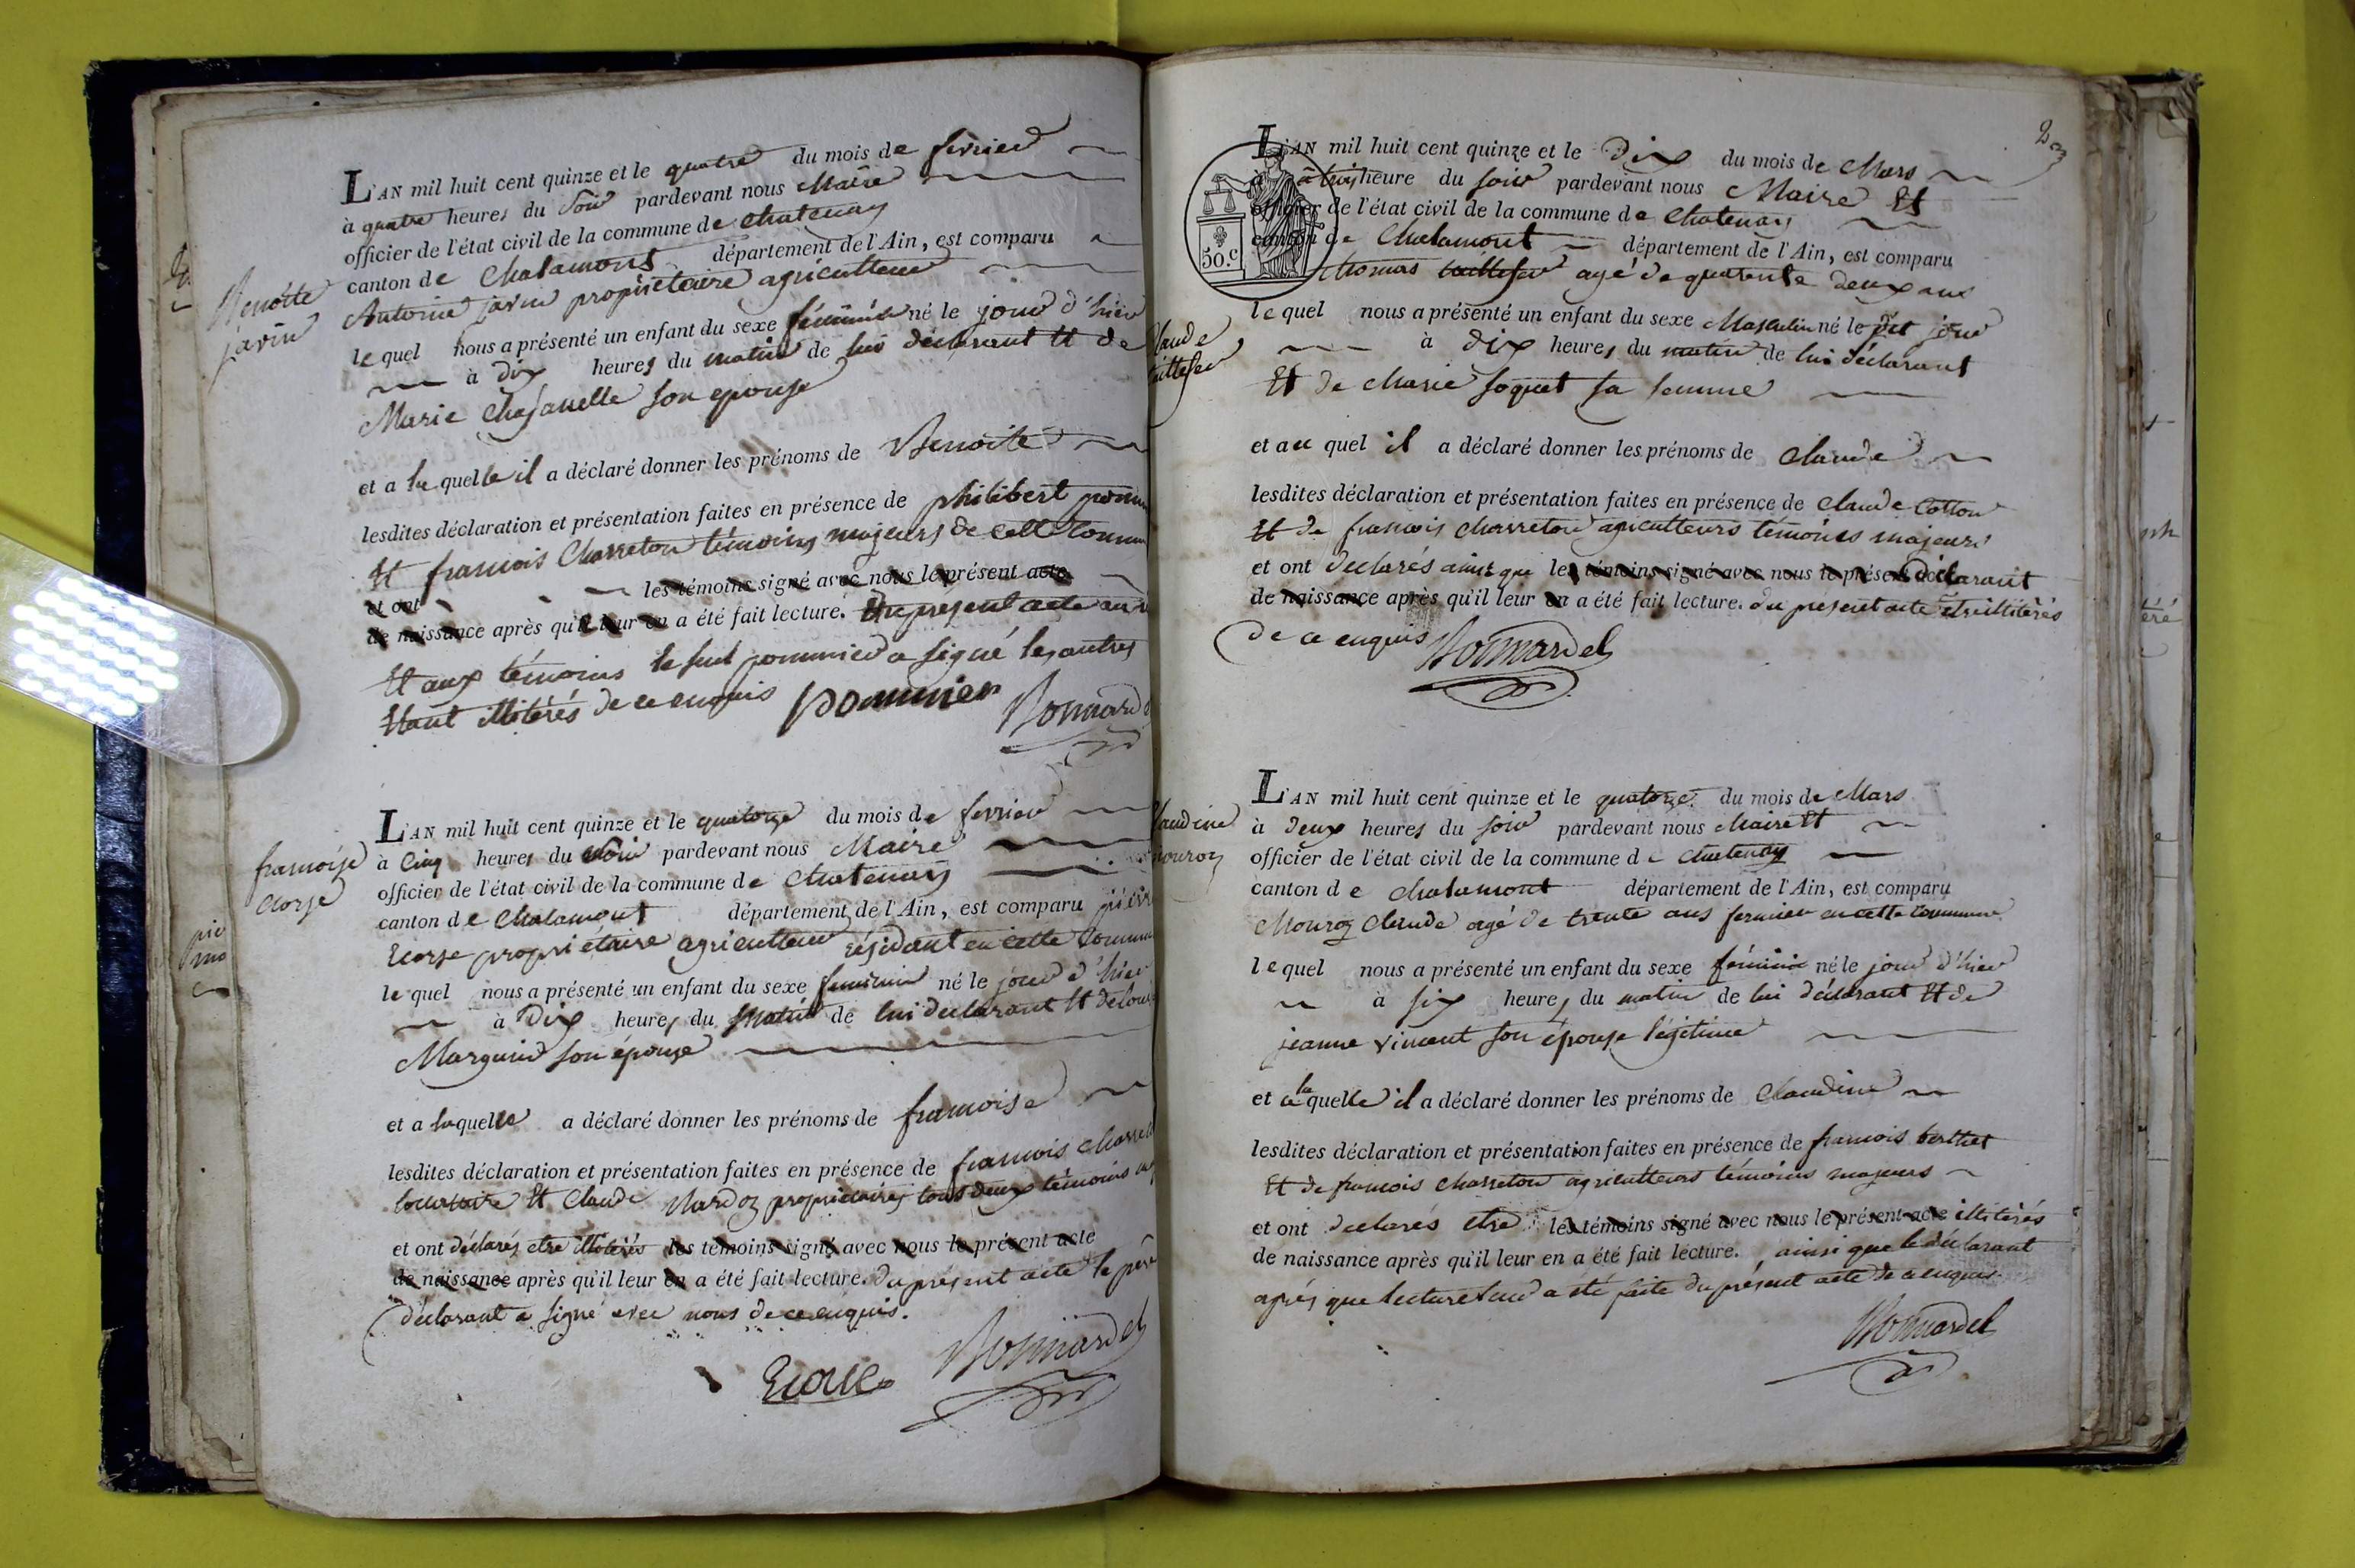 Benoite
javin
L'AN mil huit cent quinze et le quatre du mois de fevrier
à quatre heures du Soir pardevant nous Maire
officier de l'état civil de la commune de chatenay
canton de Chalamont département de l'Ain, est comparu
Antoine javin propriétaire agriculteur
le quel nous a présenté un enfant du sexe féminin né le jour d'hier
à dix heures du matin de lui déclarant Et de
Marie Chajanelle son epouse
et a la quelle il a déclaré donner les prénoms de Benoite
lesdites déclaration et présentation faites en présence de philibert pomm
Et francois Charreton témoins majeurs de cette Commu
et ont les témoins signé avec nous le présent acte
de naissance après qu'il leur en a été fait lecture. Du present acte
Et aux témoins le seul pommier a signé les autres
Etant illiterés de ce enquis pommier Bonnardel
françoise
Ecorse
L'AN mil huit cent quinze et le quatorze du mois de fevrier
à Cinq heures du Soir pardevant nous Maire
officier de l'état civil de la commune de Chatenay
canton de Chalamont département de l'Ain, est comparu pierre
Ecorse propriétaire agriculteur résidant en cette Commun
le quel nous a présenté un enfant du sexe feminin né le jour d'hier
à Dix heures du Matin de lui declarant Et de Louise
Marguin son épouse
et a laquelle a déclaré donner les prénoms de francoise
lesdites déclaration et présentation faites en présence de francois Charret
locataire Et Claude propriétaires tous deux témoins
et ont déclarés etre illiterés les témoins signé avec nous le présent acte
de naissance après qu'il leur en a été fait lecture. du présent acte le père
déclarant a signé avec nous de ce enquis.
Ecorse Bonnardel
23
L'AN mil huit cent quinze et le Dix du mois de Mars
à trois heure du soir pardevant nous Maire Et
officier de l'état civil de la commune de Chatenay
canton de Chalamont département de l'Ain, est comparu
50.c
thomas agé de quarente deux ans
laude
le quel nous a présenté un enfant du sexe Masculin né le dit jour
à dix heures du matin de lui déclarant
Et de Marie soquet sa femme
et au quel il a déclaré donner les prénoms de Claude
lesdites déclaration et présentation faites en présence de Claude Cotton
Et de francois charreton agriculteurs témoins majeurs
et ont declarés ainsi que les témoins signé avec nous le présent déclarant
de naissance après qu'il leur en a été fait lecture. du présent acte etre illiterés
de ce enquis Bonnardel
laudine
mouroz
L'AN mil huit cent quinze et le quatorze du mois de Mars
à deux heures du soir pardevant nous Maire Et
officier de l'état civil de la commune de Chatenay
canton de chalamont département de l'Ain, est comparu
Mouroz Claude agé de trente ans fermier en cette Commune
lequel nous a présenté un enfant du sexe féminin né le jour d'hier
à six heures du matin de lui déclarant Et de
jeanne vincent son épouse légitime
et a la quelle il a déclaré donner les prénoms de Claudine
lesdites déclaration et présentation faites en présence de francois berthet
Et de francois charreton agriculteurs témoins majeurs
et ont declarés etre les témoins signé avec nous le présent acte illiterés
de naissance après qu'il leur en a été fait lecture. ainsi que le declarant
après que lecture leur a été faite du présent acte de ce enquis
Bonnardel